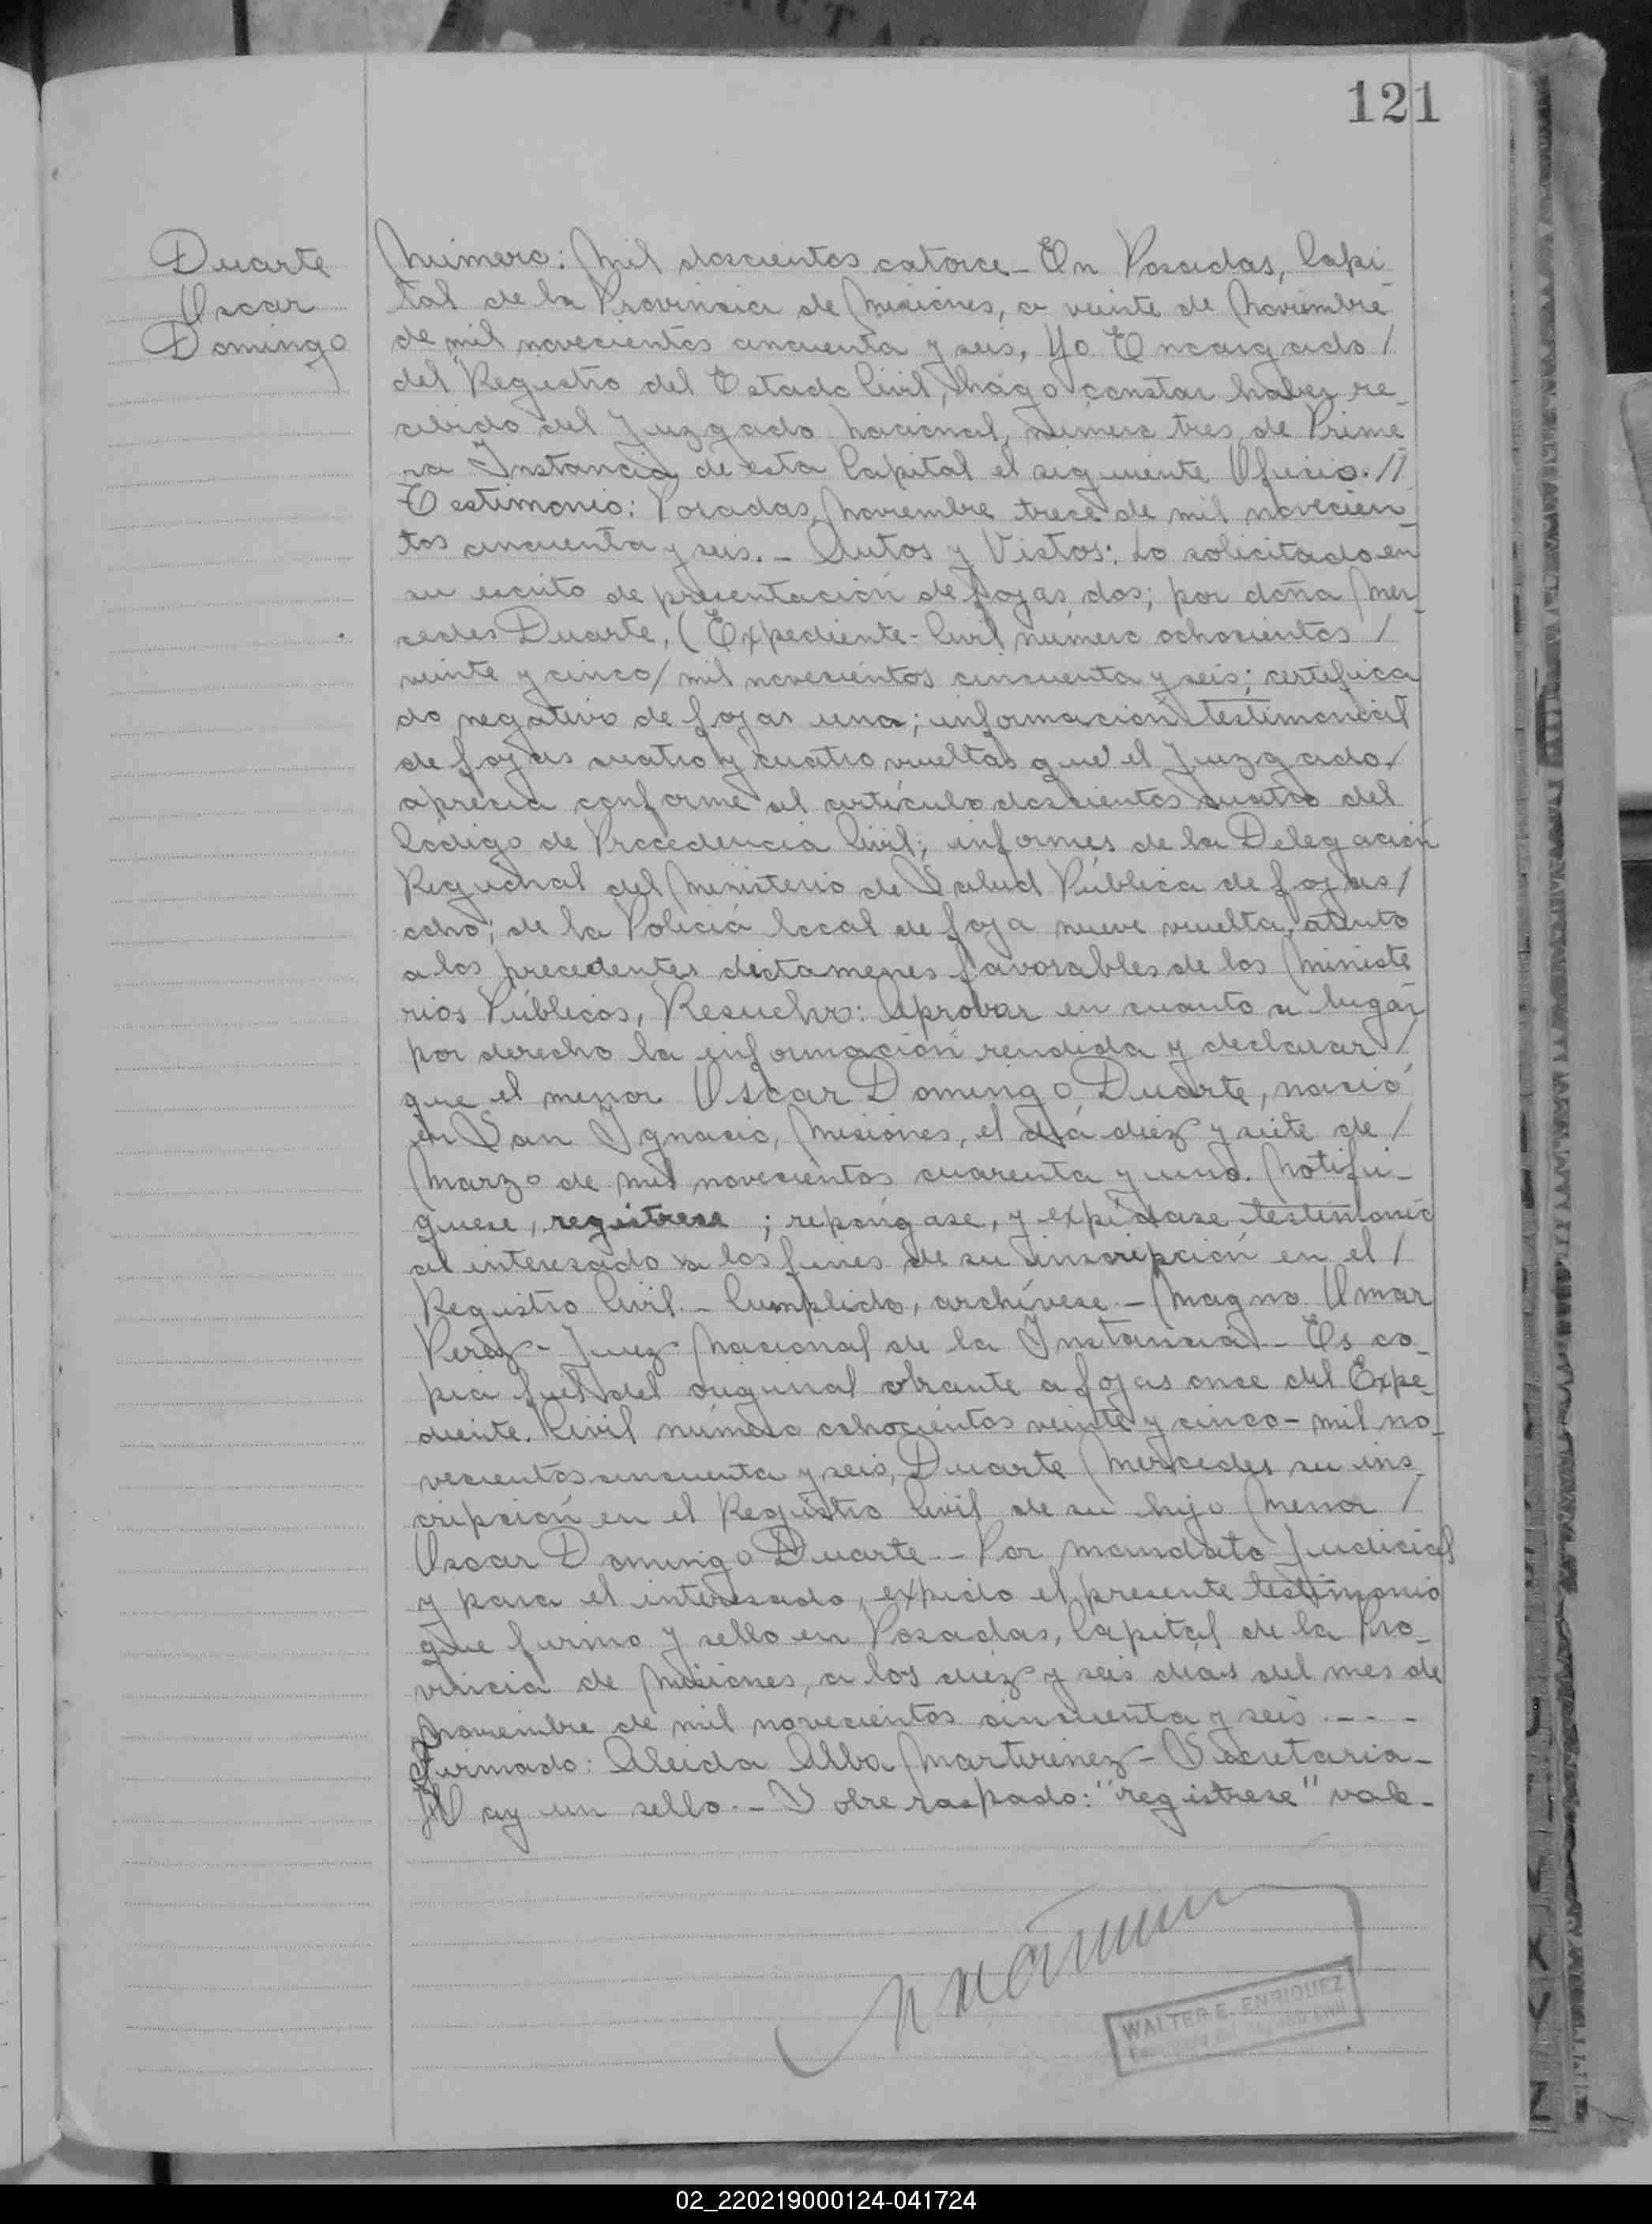 ACTAS
121
Duarte
Oscar
Domingo
Número: Mil doscientos catorce - En Posadas, Capi
tal de la Provincia de Misiones, a veinte de Noviembre
de mil novecientos cincuenta y seis, Yo Encargado /
del Registro del Estado Civil, hago constar haber re-
cibido del Juzgado Nacional, número tres, de Prime
ra Instancia de esta Capital el siguiente Oficio. //
Testimonio: Posadas, Noviembre trece de mil novecien-
tos cincuenta y seis. - Autos y Vistos: Lo solicitado en
su escrito de presentación de fojas dos; por doña Mer-
cedes Duarte, (Expediente - Civil número ochocientos /
veinte y cinco / mil novecientos cincuenta y seis; certifica
do negativo de fojas una; información testimonial
de fojas cuatro y cuatro vueltas que el Juzgado /
aprecia conforme al artículo doscientos cuatro del
Codigo de Procedencia Civil; informes de la Delegación
Regional del Ministerio de Salud Pública de fojas /
ocho; de la Policiá local de foja nueve vuelta, atento
a los precedentes dictamenes favorables de los Ministe
rios Públicos, Resuelvo: Aprobar en cuanto a lugar
por derecho la información rendida y declarar /
que el menor Oscar Domingo Duarte, nació
en San Ignacio, Misiones, el día diez y siete de /
Marzo de mil novecientos cuarenta y uno. Notifi-
quese, registrese ; repóngase, y expídase testimonio
al interesado a los fines de su inscripción en el /
Registro Civil. - Cumplido, archívese. - Magno Omar
Perez - Juez Nacional de la Instancia. - Es co-
pia fiel del original obrante a fojas once del Expe-
diente. Civil número ochocientos veinte y cinco - mil no-
vecientos cincuenta y seis, Duarte Mercedes su ins-
cripción en el Registro Civil de su hijo Menor /
Oscar Domingo Duarte. - Por mandato Judicial
y para el interesado, expido el presente testimonio
que firmo y sello en Posadas, Capital de la Pro-
vincia de Misiones, a los diéz y seis días del mes de
Noviembre de mil novecientos cincuenta y seis. - - -
Firmado: Aleida Alba Martinez - Secretaria -
Hay un sello. - Sobre raspado: "registrese" vale -
WALTER E. ENRIQUEZ
02_220219000124-041724